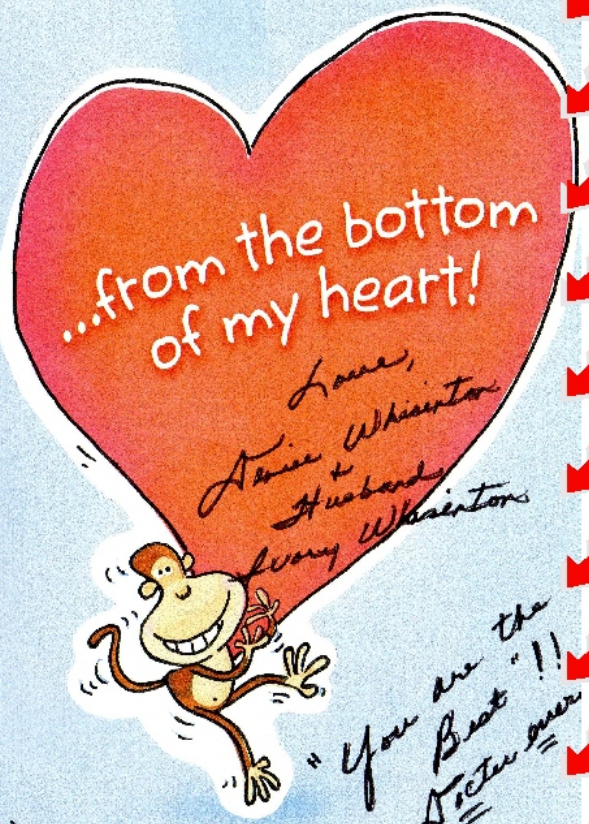 ...from the bottom
of my heart!
Love,
Denise Whisinton
+
Husband,
Ivory Whisenton
"You are the
Best"!!
Docter ever